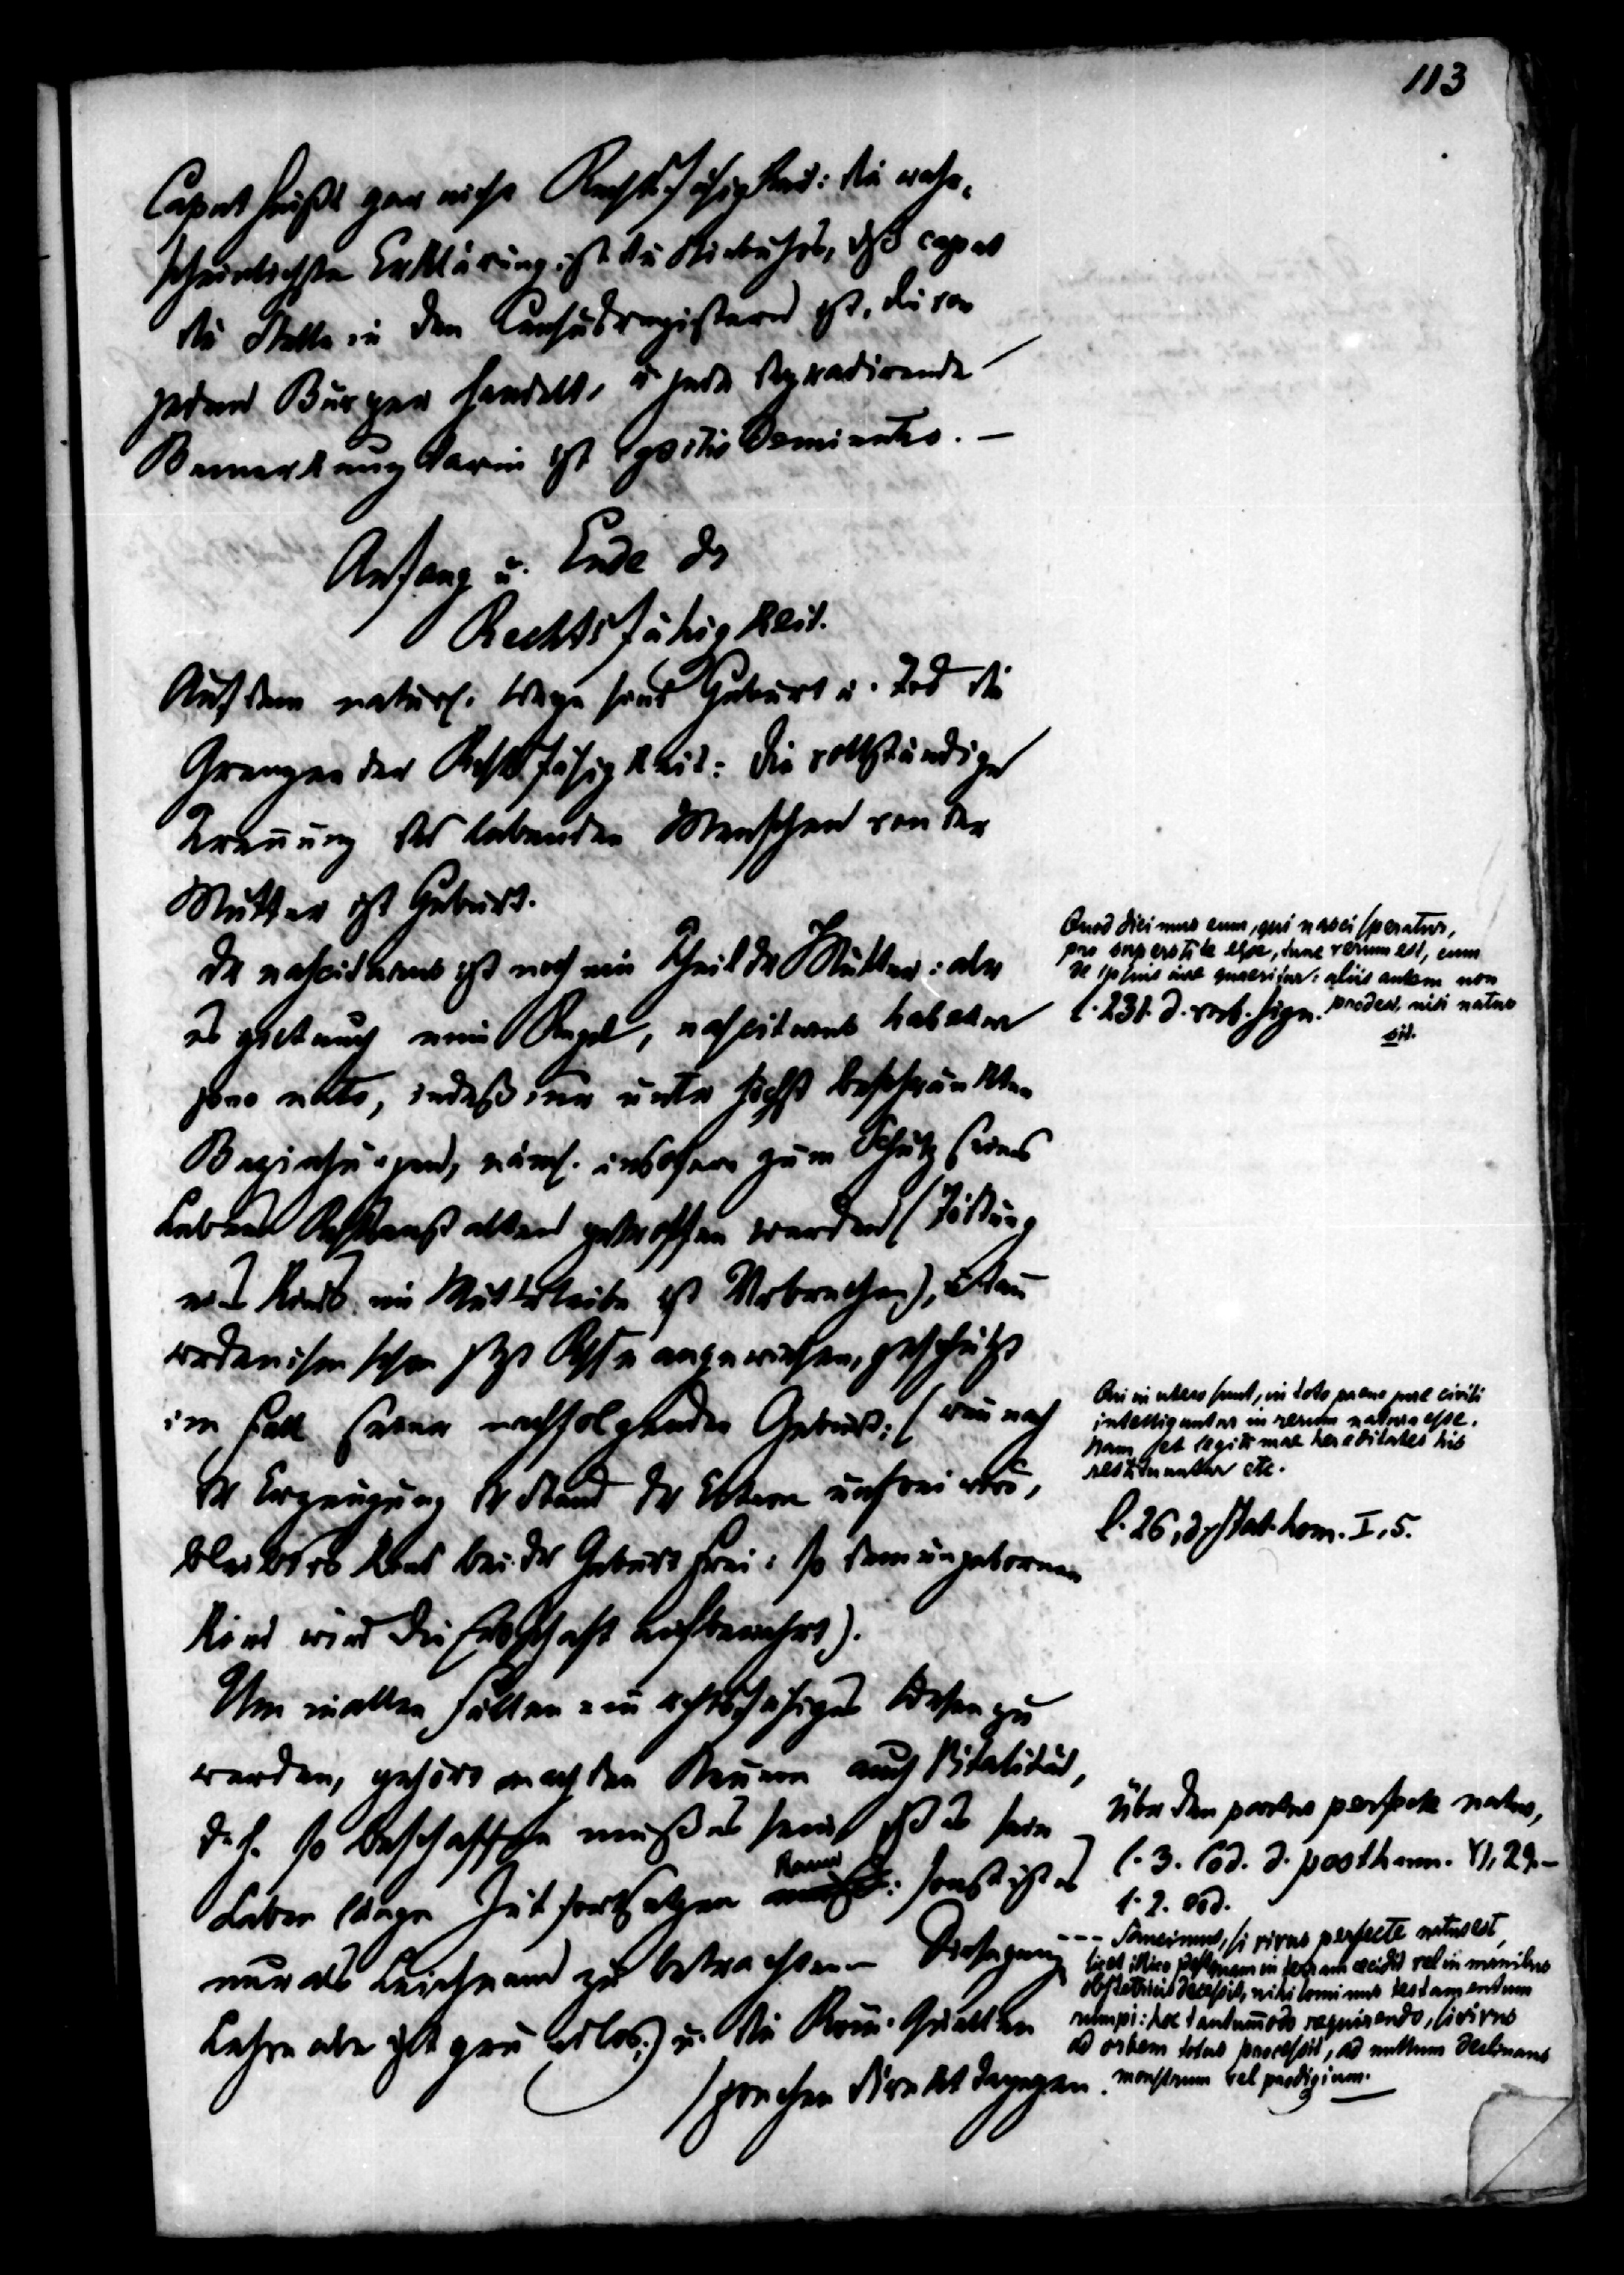 113
Caput heißt gar nicht Rechtsfähigkeit: die wahr-
scheinlichste Erklärung ist die Niebuhrs, daß caput
die Stelle in den Censusregistern ist, die von
jedem Bürger handelt, u jede degradirende
Bemerkung darin ist capitis deminutio. —
Anfang u. Ende der
Rechtsfähigkeit.
Auf dem natürl. Wege sind Geburt u. Tod die
Grenzen der Rechtsfähigkeit: die vollständige
Trennung des lebenden Menschen von der
Mutter ist Geburt.
Der nasciturus ist noch ein Theil der Mutter: aber
es gilt auch eine Regel, nasciturus habetur
pro nato, indeß nur unter höchst beschränkten
Beziehungen, näml. insofern zum Schutz seines
Lebens Rechtsanstalten getroffen werden (Tödtung
eines Kindes im Mutterleibe ist Verbrechen), dann
werden ihm schon jetzt Rechte angewiesen, geschützt
im Fall seiner nachfolgenden Geburt: (wenn nach
der Erzeugung der Stand der Eltern unfrei wird,
bleibt das Kind bei der Geburt frei: so dem ungebornen
Kind wird die Erbschaft aufbewahrt).
Um in allen Fällen ein rechtsfähiges Wesen zu
werden, gehört nach den Neuern auch Vitalität,
d. h. so beschaffen muß es sein, daß es sein
Leben lange Zeit fortsetzen kann: sonst ist es
nur als Leichnam zu betrachten. — Diese ganze
Lehre aber ist grundlos; u. die Röm. Quellen
sprechen direkt dagegen.
Quod dicimus eum, qui nasci speratur,
pro superstite esse, tunc verum est, cum
de ipsius iure quaeritur: aliis autem non
prodest nisi natus
l. 231. d. verb. sign.
sit.
Qui in utero sunt, in toto paene jure civili
intelliguntur in rerum natura esse.
Nam et legitimae hereditates his
restituuntur etc.
l. 26, d. stat. hom. I, 5.
über den partus perfecte natus,
l. 3. Cod. d. posthum. VI, 29. —
l. 2. eod.
--- Sancimus, si vivus perfecte natus est,
licet illico postquam in terram cecidit vel in manibus
obstetricis decessit, nihilominus testamentum
rumpi: hoc tantummodo requirendo, si vivus
ad orbem totus processit, ad nullum declinans
monstrum vel prodigium. —